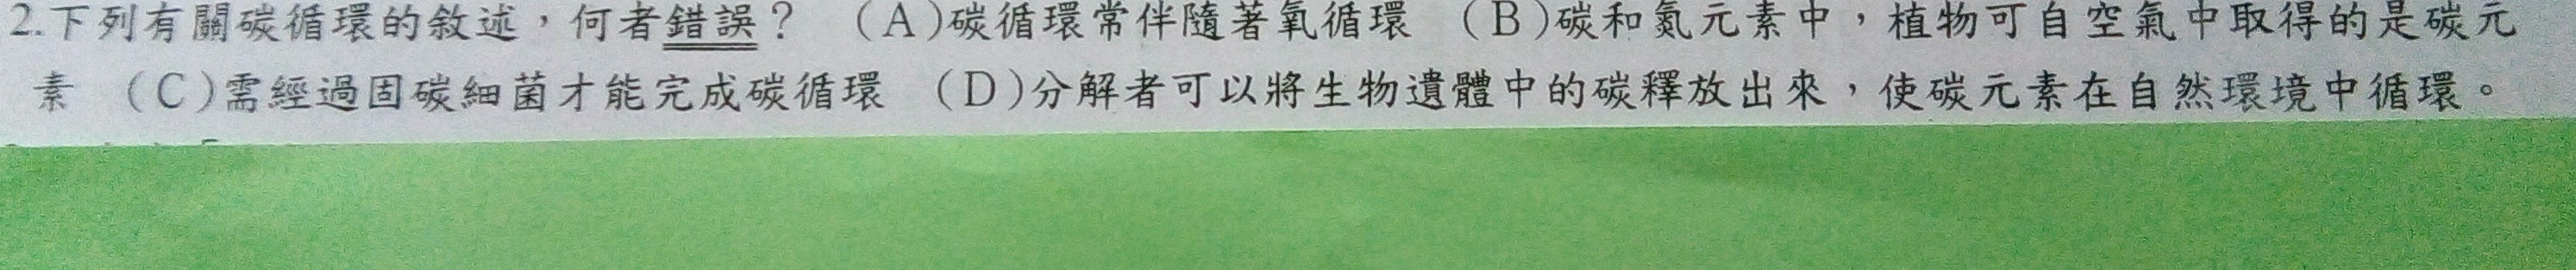 2.下列有關碳循環的敘述，何者錯誤？ （A）碳循環常伴隨著氧循環 （B）碳和氮元素中，植物可自空氣中取得的是碳元
素 （C）需經過固碳細菌才能完成碳循環 （D）分解者可以將生物遺體中的碳釋放出來，使碳元素在自然環境中循環。